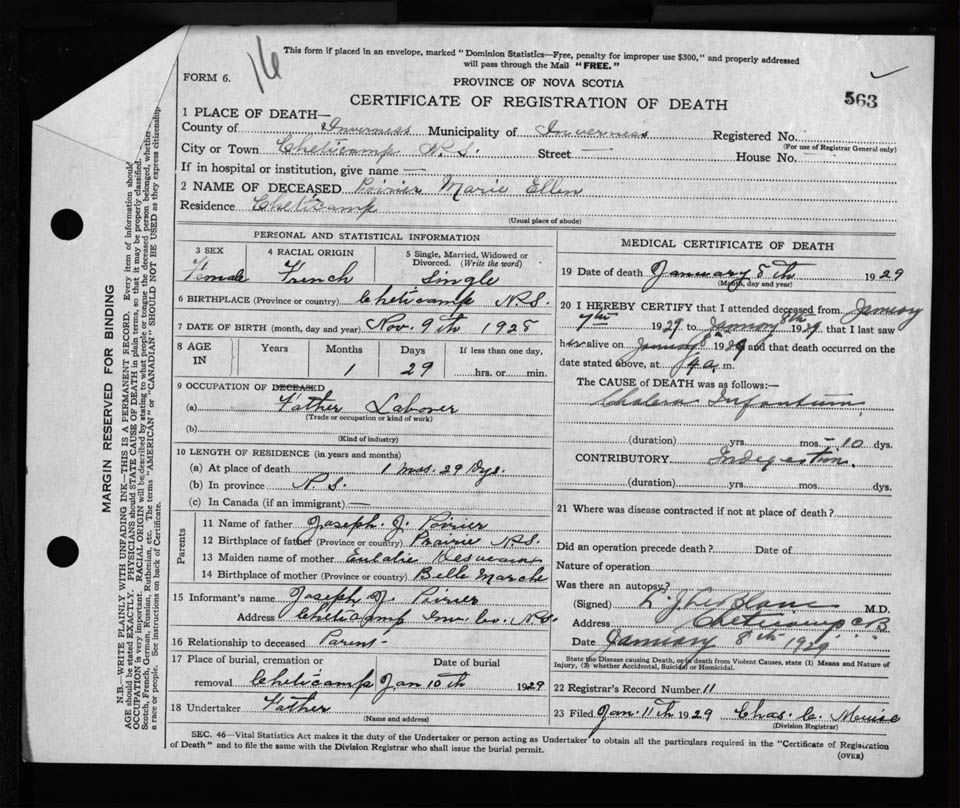 16
This form if placed in an envelope, marked "Dominion Statistics—Free, penalty for improper use $300," and properly addressed
will pass through the Mail "FREE."
FORM 6.
PROVINCE OF NOVA SCOTIA
CERTIFICATE OF REGISTRATION OF DEATH
563
1 PLACE OF DEATH—
County of Inverness Municipality of Inverness Registered No.
(For use of Registrar General only)
City or Town Cheticamp N.S. Street — House No. —
If in hospital or institution, give name —
2 NAME OF DECEASED Poirier Marie Ellen
Residence Cheticamp
(Usual place of abode)
PERSONAL AND STATISTICAL INFORMATION
3 SEX 4 RACIAL ORIGIN 5 Single, Married, Widowed or
Divorced. (Write the word)
Female French Single
6 BIRTHPLACE (Province or country) Cheticamp N.S.
7 DATE OF BIRTH (month, day and year) Nov. 9th 1928
8 AGE IN Years Months Days If less than one day,
1 29 hrs. or min.
9 OCCUPATION OF DECEASED
(a) Father Laborer
(Trade or occupation or kind of work)
(b)
(Kind of industry)
10 LENGTH OF RESIDENCE (in years and months)
(a) At place of death 1 mos. 29 Dys.
(b) In province N.S.
(c) In Canada (if an immigrant) —
Parents
11 Name of father Joseph J. Poirier
12 Birthplace of father (Province or country) Prairie N.S.
13 Maiden name of mother Eulalie
14 Birthplace of mother (Province or country) Belle Marche
15 Informant's name Joseph J. Poirier
Address Cheticamp Inv. Co. N.S.
16 Relationship to deceased Parent
17 Place of burial, cremation or Date of burial
removal Cheticamp Jan 10th 1929
18 Undertaker Father
(Name and address)
MEDICAL CERTIFICATE OF DEATH
19 Date of death January 8th 1929
(Month, day and year)
20 I HEREBY CERTIFY that I attended deceased from January
7th 1929 to January 8th 1929 that I last saw
her alive on January 8th 1929 and that death occurred on the
date stated above, at a. m.
The CAUSE of DEATH was as follows:—
Cholera Infantum
(duration) yrs. mos. — 10 dys.
CONTRIBUTORY Indigestion.
(duration) yrs. mos. dys.
21 Where was disease contracted if not at place of death?
Did an operation precede death? Date of
Nature of operation
Was there an autopsy?
(Signed) LeBlanc M.D.
Address Cheticamp CB
Date January 8th 1929
State the Disease causing Death, or in death from Violent Causes, state (1) Means and Nature of
Injury, (2) whether Accidental, Suicidal or Homicidal.
22 Registrar's Record Number 11
23 Filed Jan. 11th 1929 Chas. C. Muise
(Division Registrar)
SEC. 46—Vital Statistics Act makes it the duty of the Undertaker or person acting as Undertaker to obtain all the particulars required in the "Certificate of Registration
of Death" and to file the same with the Division Registrar who shall issue the burial permit.
(OVER)
MARGIN RESERVED FOR BINDING
N.B.—WRITE PLAINLY WITH UNFADING INK—THIS IS A PERMANENT RECORD. Every item of information should
AGE should be stated EXACTLY. PHYSICIANS should STATE CAUSE OF DEATH in plain terms, so that it may be properly classified.
OCCUPATION is very important. RACIAL ORIGIN will be described by stating to what people or tongue the deceased person belonged, whether
Scotch, French, German, Russian, Ruthenian, etc. The terms "AMERICAN" or "CANADIAN" SHOULD NOT BE USED as they express citizenship
a race or people. See instructions on back of Certificate.